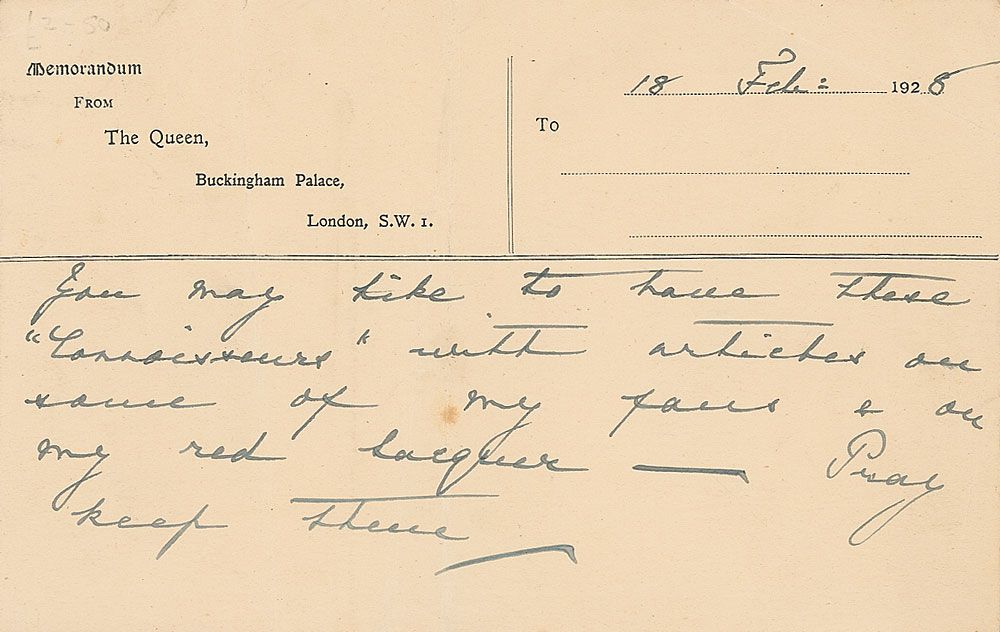 £2-50
Memorandum
FROM
The Queen,
Buckingham Palace,
London, S.W. 1.
18 Feb: 1928
To
You may like to have these
"Connoisseurs" with articles on
some of my fans & on
my red lacquer — Pray
keep them —